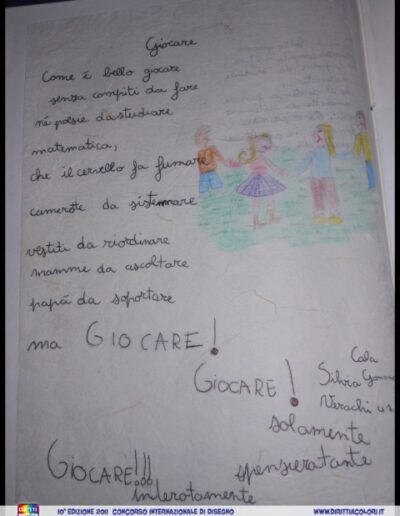 Giocare
Come è bello giocare
senza compiti da fare
né poesie da studiare
matematica,
che il cervello fa fumare
camerette da sistemare
vestiti da riordinare
mamme da ascoltare
papá da soportare
ma GIOCARE!
GIOCARE!
Cala
Silvia
Verachi
solamente
GIOCARE!!!
spensieratante
interotamente
10° EDIZIONE 2011 CONCORSO INTERNAZIONALE DI DISEGNO
WWW.DIRITTIACOLORI.IT